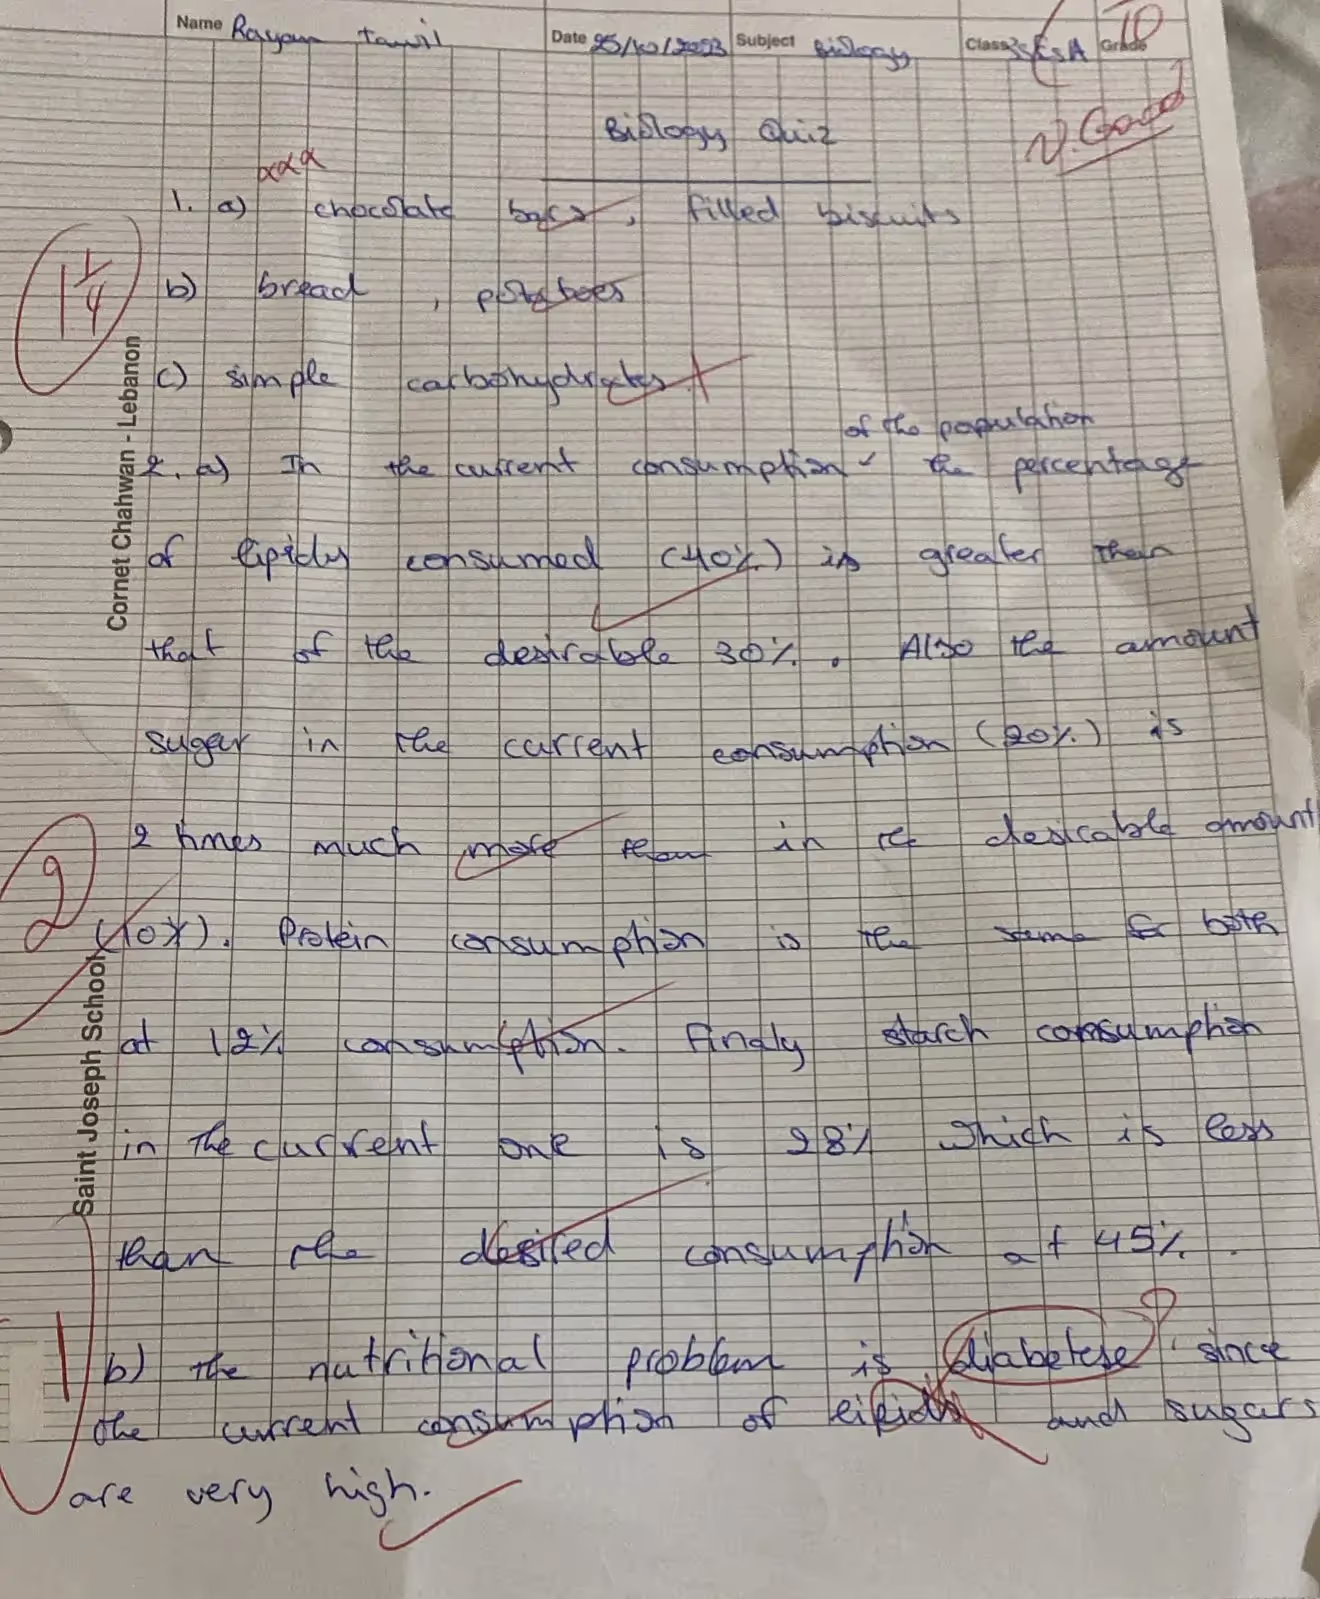 Name Rayan Tawil Date 25/10/2023 Subject Biology Class Grade 10
Biology Quiz
V. Good
1. a) chocolate bars, filled biscuits
1 1/4
b) bread, potatoes
c) simple carbohydrates
of the population
2. a) In the current consumption the percentage
of lipids consumed (40%) is greater than
that of the desirable 30%. Also the amount
sugar in the current consumption (20%) is
2 times much more than in the desirable amount
2
(10%). Protein consumption is the same for both
at 12% consumption. Finaly starch consumption
in the current one is 28% which is less
than the desired consumption at 45%.
1
b) the nutritional problem is diabetese, since
the current consumption of lipids and sugars
are very high.
Cornet Chahwan - Lebanon
Saint Joseph School